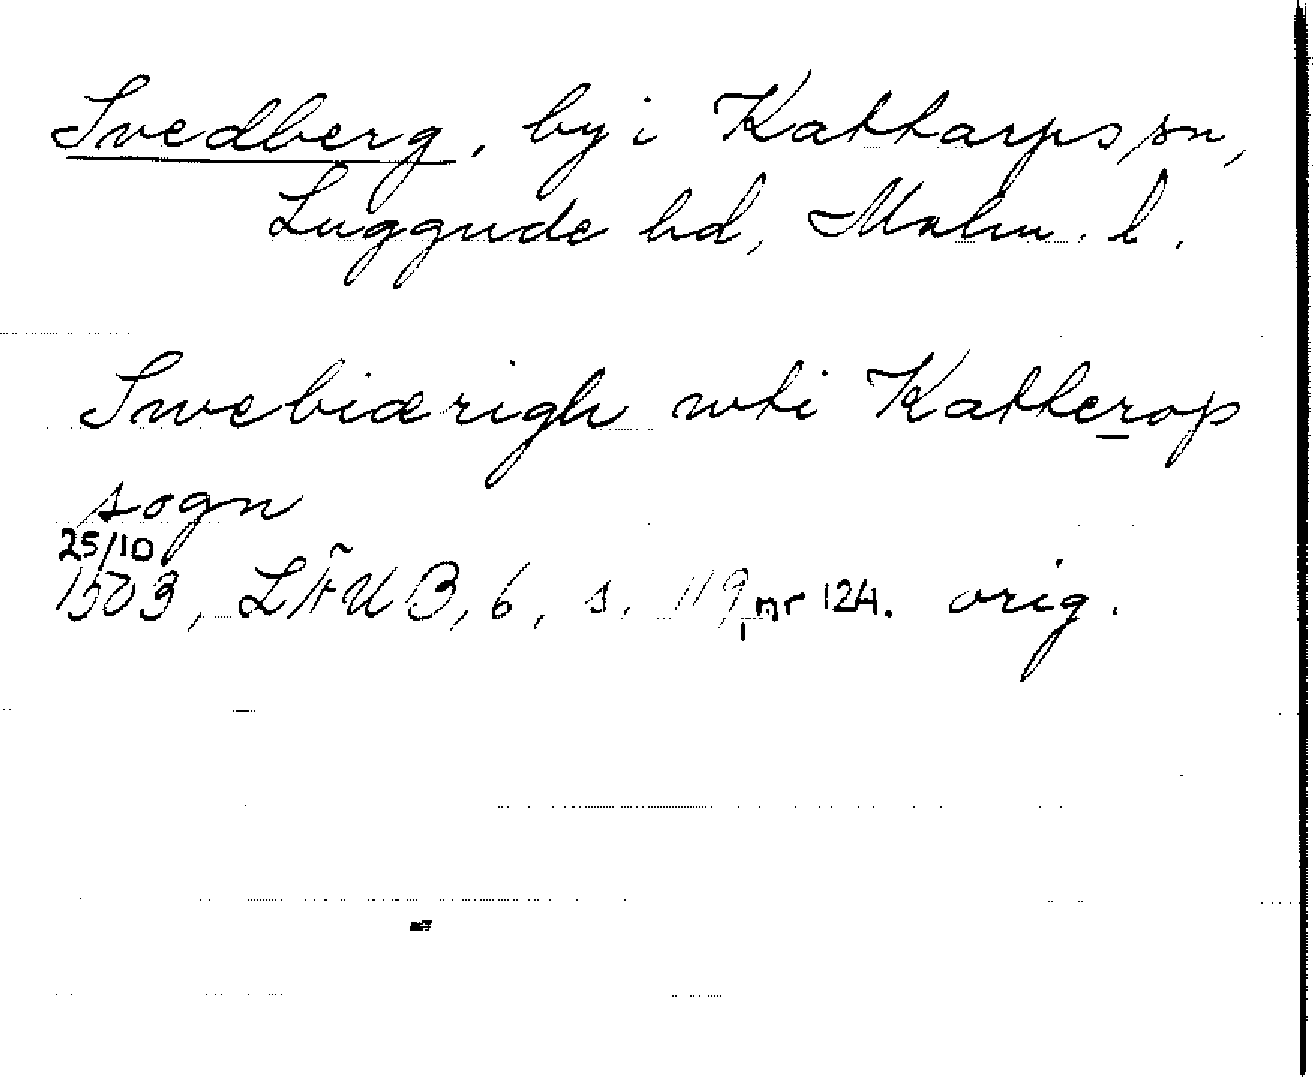 Svedberg, by i Kattarps sn,
Luggude hd, Malm. l.
Swebiærigh wti Katterop
sogn
25/10
1503, LÄUB, 6, s. 119, nr 124. orig.